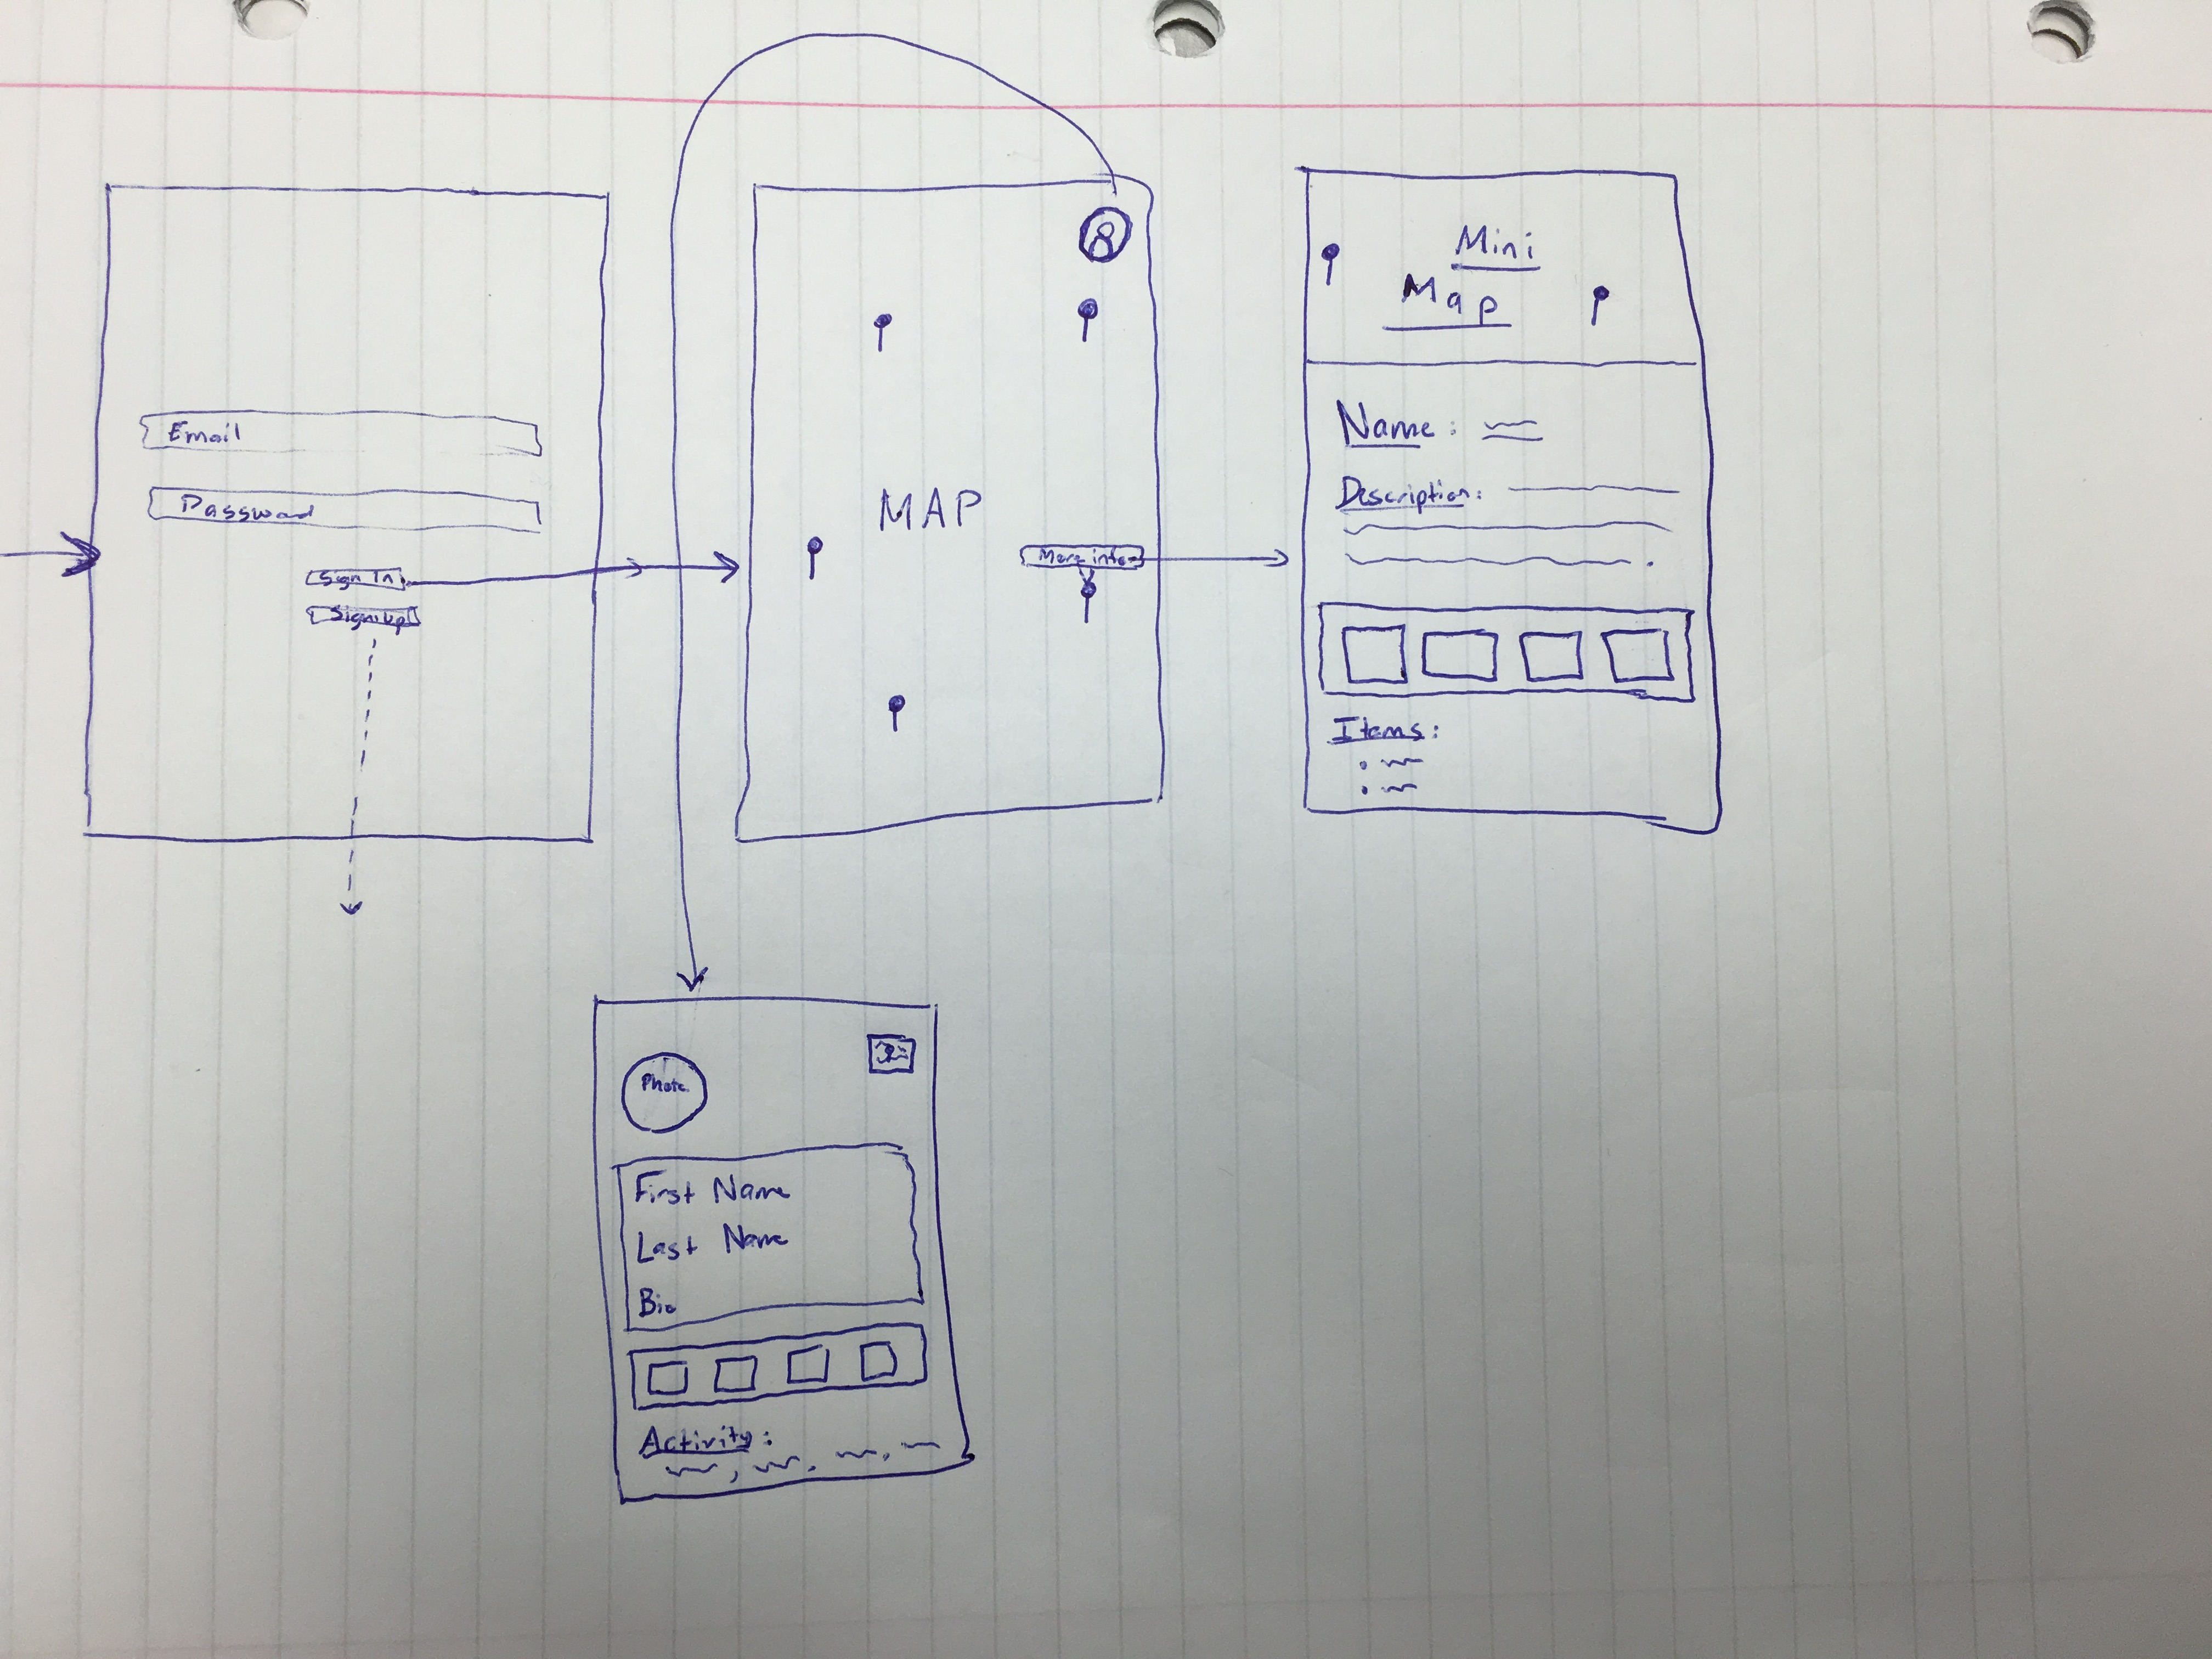 Email
Password
Sign In
Sign Up
MAP
More info
Mini
Map
Name:
Description:
Items:
Photo
First Name
Last Name
Bio
Activity: